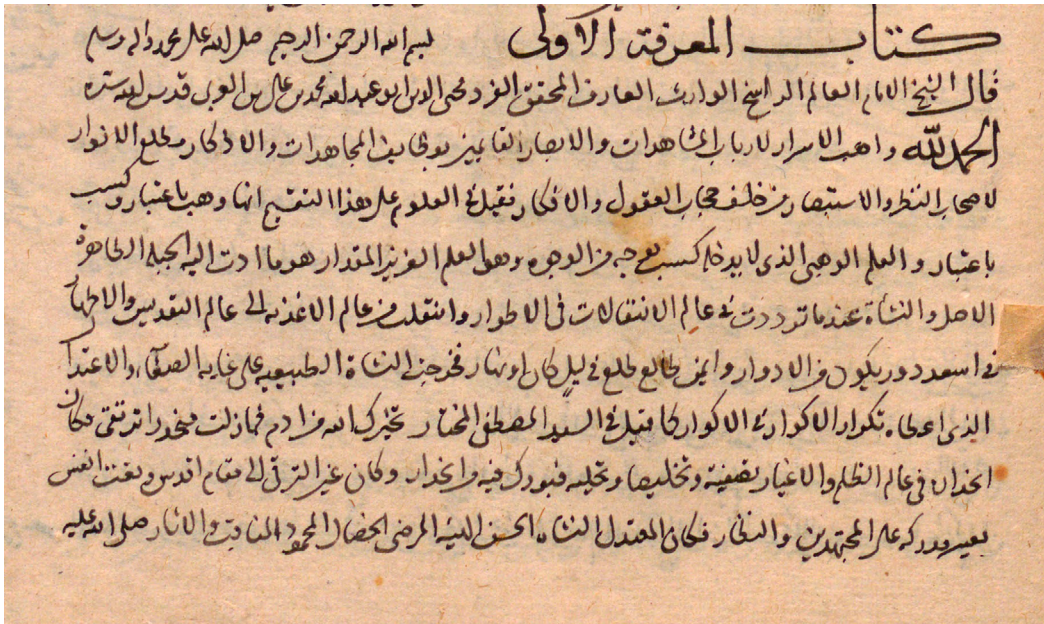 كتاب المعرفة الاولى بسم الله الرحمن الرحيم صلى الله على محمد واله وسلم
قال الشيخ الامام العالم الراسخ الوارث العارف المحقق الفرد محيى الدين ابو عبد الله محمد بن على بن العربى قدس الله سره
الحمد لله واهب الاسرار لارباب المشاهدات والابصار القايمين بوظايف المجاهدات والاذكار مطلع الانوار
لاصحاب النظر والاستبصار من خلف حجاب العقول والافكار فقيل فى العلوم على هذا التقسيم انها وهب باعتبار وكسب
باعتبار والعلم الوهبى الذى لا يدخله كسب بوجه من الوجوه وهو العلم العزيز المقدار هو ما ادت اليه الجبلة الطاهرة
الاصل والنشاة عندما ترددت فى عالم الانتقالات فى الاطوار وانتقلت من عالم الاغذية الى عالم التقديس والاطهار
فى اسعد دور يكون من الادوار وايمن طالع طلع فى ليل كان او نهار فخرجت النشاة الطبيعية على غاية الصفاء والاعتدال
الذى اعطاه تكرار الاكوار فى الاكوار كما قيل فى السيد المصطفى المختار تخيرك الله من ادم فما زلت منحدرا ترتقى فكان
انحداره فى عالم الظلم والاغيار تصفية وتخليصا وتحلية فبورك فيه من انحدار وكان عين الترقى الى مقام اقدس ونعت انفس
بغير مدركه على المجتهدين والنظار فكان المعتدل النشاه الحسن البنية المرضى الخصال المحمود المناقب والاثار صلى الله عليه